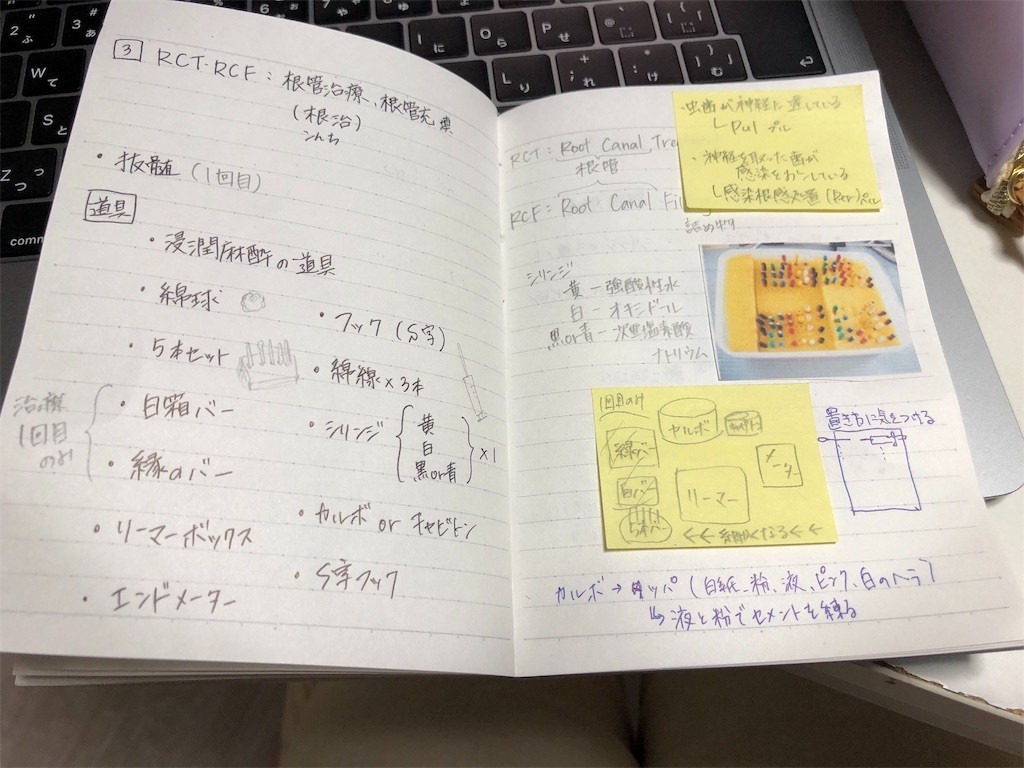 3 RCT・RCF：根管治療、根管充填
(根治)
こんち
・抜髄 (1回目)
道具
・浸潤麻酔の道具
・綿球
・フック (S字)
・5本セット
・綿線×3本
治療
1回目
のみ
・白箱バー
・緑のバー
・シリンジ
黄
白
黒or青
×1
・リーマーボックス
・カルボ or キャビトン
・エンドメーター
・S字フック
RCT：Root Canal Tre
根管
RCF：Root Canal Fi
詰め物
・虫歯が神経に達している
└Pul プル
・神経を取った歯が
感染をおこしている
└感染根感処置 (Per)ペル
シリンジ
黄－強酸性水
白－オキシドール
黒or青－次亜塩素酸
ナトリウム
1回目のみ
カルボ
緑バー
メーター
白バー
リーマー
5本バー
←←細かくなる←←
置き方に気をつける
カルボ→ (白紙、粉、液、ピンク、白のヘラ)
↳液と粉でセメントを練る
W
て
S
と
Z
つ
っ
I
に
O
ら
P
せ
L
り
れ
け
む
comm